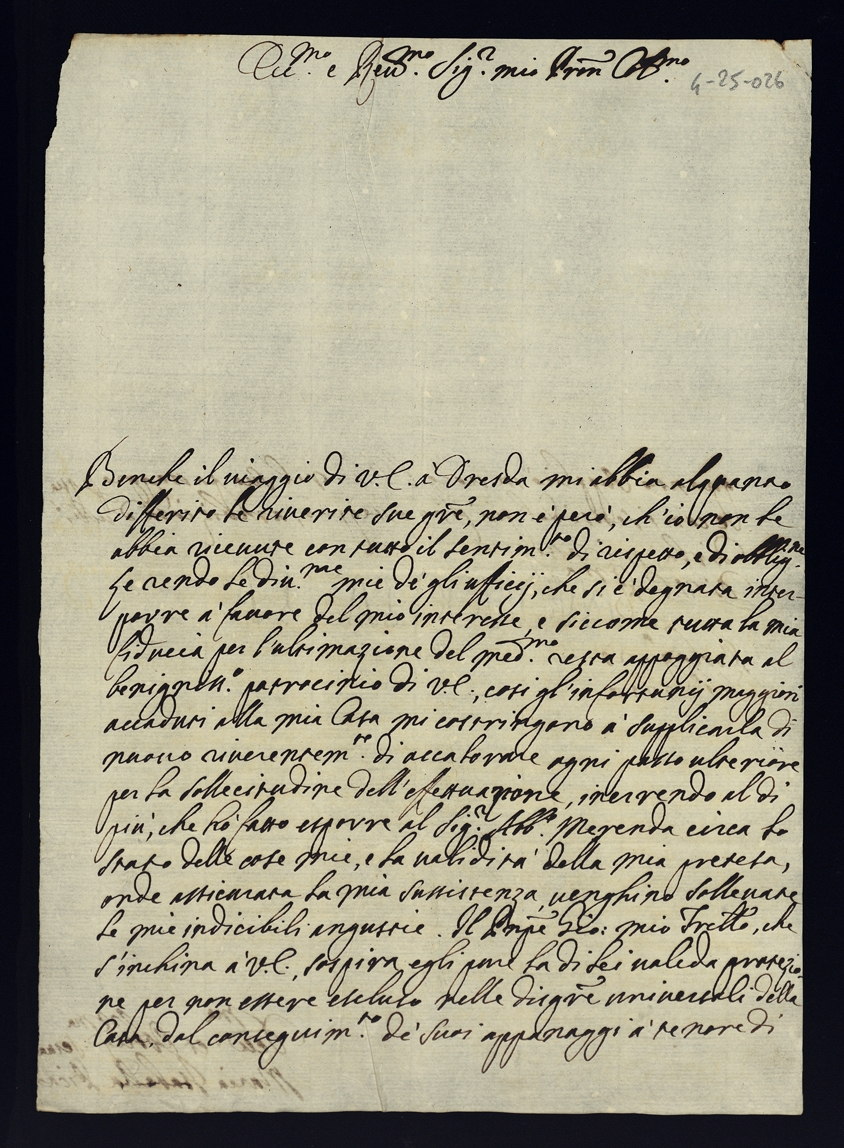 Ecc.mo e Rev.mo Sig.r mio Pron Oss.mo
4-25-026
Benche il viaggio di V.E. à Dresda mi abbia alquanto
differito le riverite sue gre, non è però, ch'io non le
abbia ricevute con tutto il sentim.to di rispetto, e di obblig.ne
Le rendo le div.me mie de gli ufficij, che si è degnata inter-
porre à favore del mio interesse, e siccome tutta la mia
fiducia per l'ultimazione del med.mo resta appoggiata al
benigniss.o patrocinio di V.E., così gl'infortunij maggiori
accaduti alla mia Casa mi costringono à supplicarla di
nuovo riverentem.te di accalorare ogni passo ulteriore
per la sollecitudine dell'effettuazione, inerrendo al di
più, che hò fatto esporre al Sig.r Abb.e Merenda circa lo
stato delle cose mie, e la validità della mia pretesa,
onde assicurata la mia sussistenza, venghino sollevate
le mie indicibili angustie. Il Pnpe Gio: mio Frello, che
s'inchina à V.E., sospira egli pure la di lei valida protezio-
ne per non essere escluso nelle disgre universali della
Casa, dal conseguim.to de' suoi appanaggi à tenore di